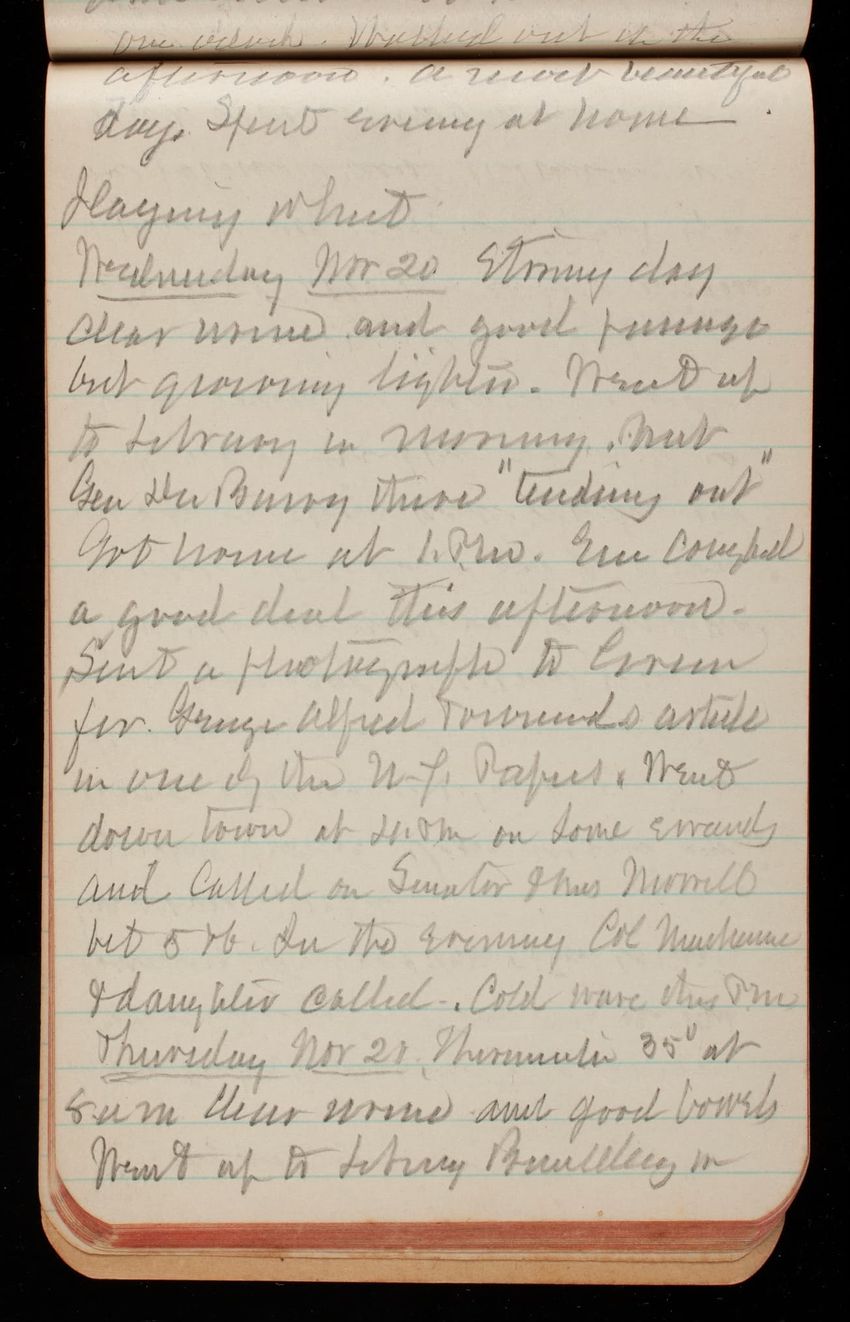 one oclock. Walked out in the
afternoon. A most beautiful
day. Spent evening at home
Playing Whist
Wednesday Nov 20 Stormy day
clear urine and good passage
but growing lighter. Went up
to Library in morning. Met
Gen Du Barry there "tending out"
Got home at 1. P.M. Gen
a good deal this afternoon.
Sent a photograph to
for George Alfred Townsends article
in one of the N.Y. Papers. Went
down town at P.M on some errands
and Called on Senator & Mrs Morrill
bet 5 & 6. In the evening Col Mackenzie
& daughter called. Cold wave this P.M
Thursday Nov 21 Thermometer 35° at
8 a m Clear urine and good bowels
Went up to Library Building in